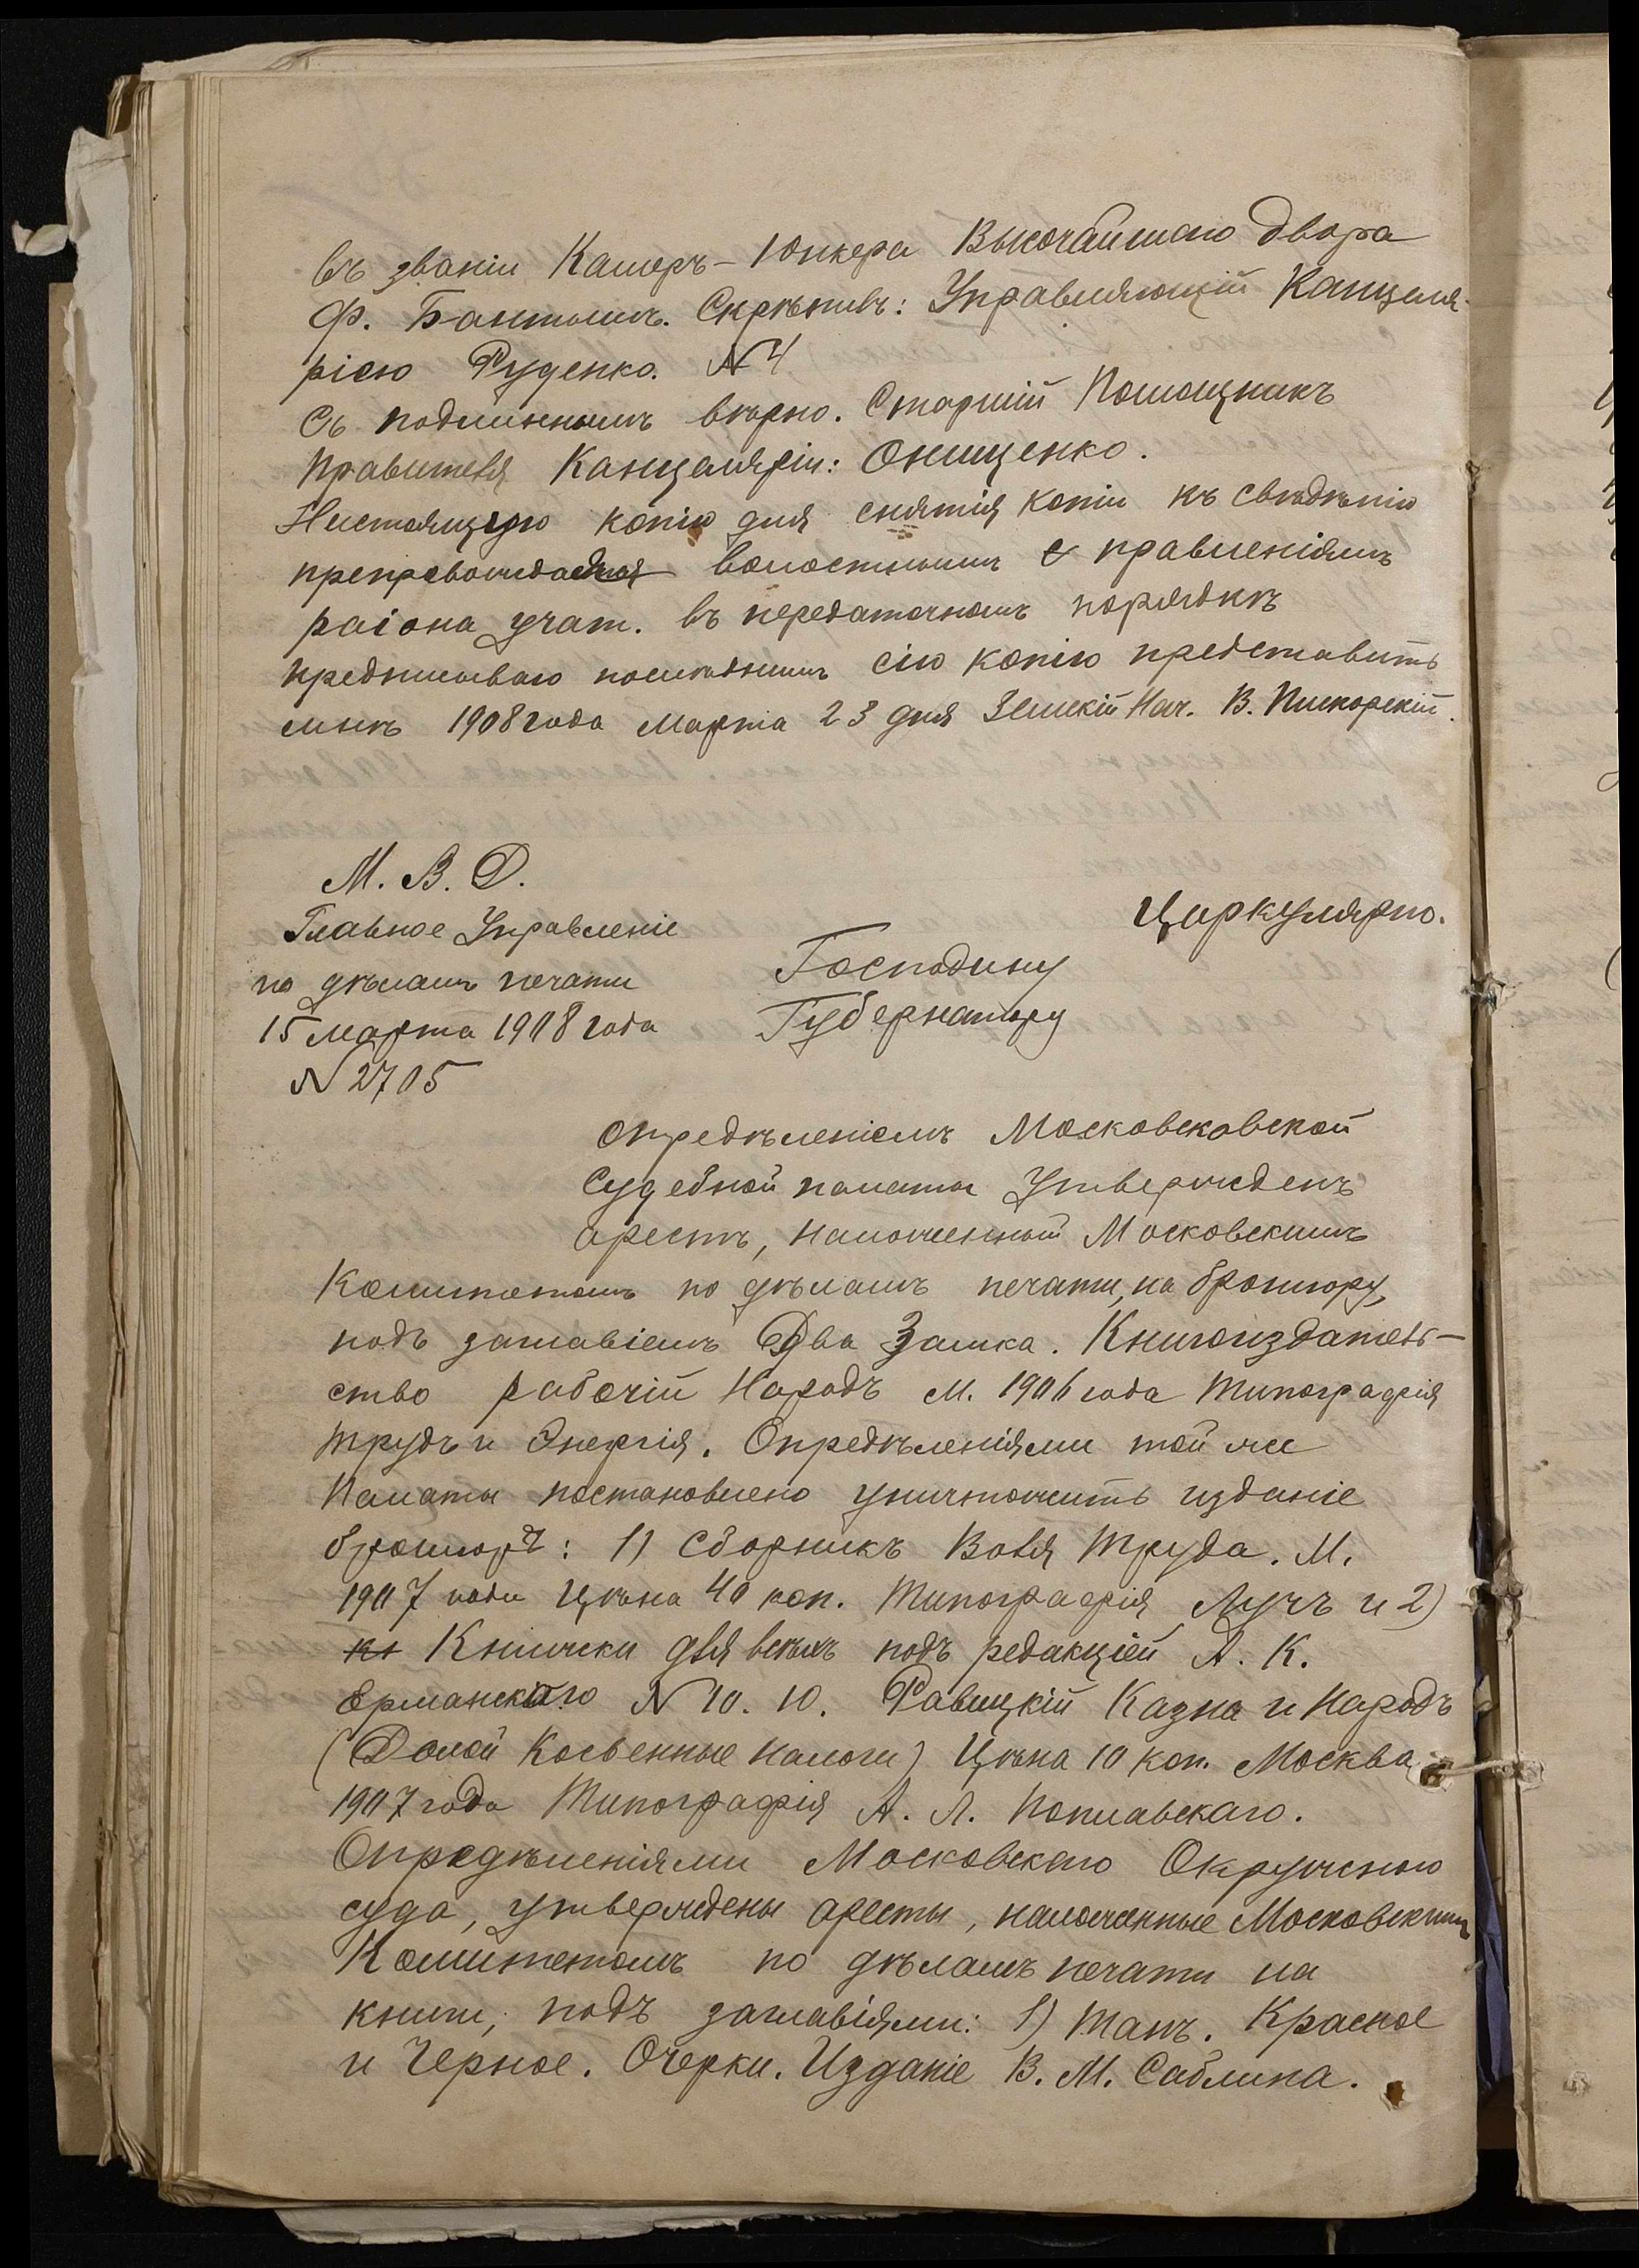 въ званіи Камеръ-Юнкера Высочайшаго Двора
Ф. Бантышъ. Скрѣпилъ: Управляющій Канцеля-
ріею Руденко. N 4
Съ подлиннымъ вѣрно. Старшій Помощникъ
Правителя Канцеляріи: Онищенко.
Настоящую копію для снятія копіи къ свѣдѣнію
волостнымъ правленіямъ
раіона участ. въ передаточномъ порядкѣ
предписываю послѣднимъ сію копію представить
мнѣ 1908 года Марта 23 дня Земскій Нач. В. Пискорскій.
М. В. Д.
Главное Управленіе
по дѣламъ печати
15 Марта 1908 года
N 2705
Циркулярно.
Господину
Губернатору
Опредѣленіемъ Московсковской
Судебной палаты Утвержденъ
арестъ, наложенный Московскимъ
Комитетомъ по дѣламъ печати, на брошюру,
подъ заглавіемъ Два Замка. Книгоиздатель-
ство рабочій Народъ М. 1906 года Типографія
Трудъ и Энергія. Опредѣленіями той же
Палаты постановлено уничтожить изданіе
брошюръ: 1) Сборникъ Воля Труда. М.
1907 года Цѣна 40 коп. Типографія Лучъ и 2)
кн Книжки для всѣхъ подъ редакціей А. К.
Ерманскаго N 10. Ю. Равицкій Казна и Народъ
(Долой Косвенные налоги) Цѣна 10 коп. Москва
1907 года Типографія А. Л. Поплавскаго.
Опредѣленіями Московскаго Окружного
суда, утверждены аресты, наложенные Московскимъ
Комитетомъ по дѣламъ печати на
книги, подъ заглавіями: 1) Танъ. Красное
и Черное. Очерки. Изданіе В. М. Саблина.